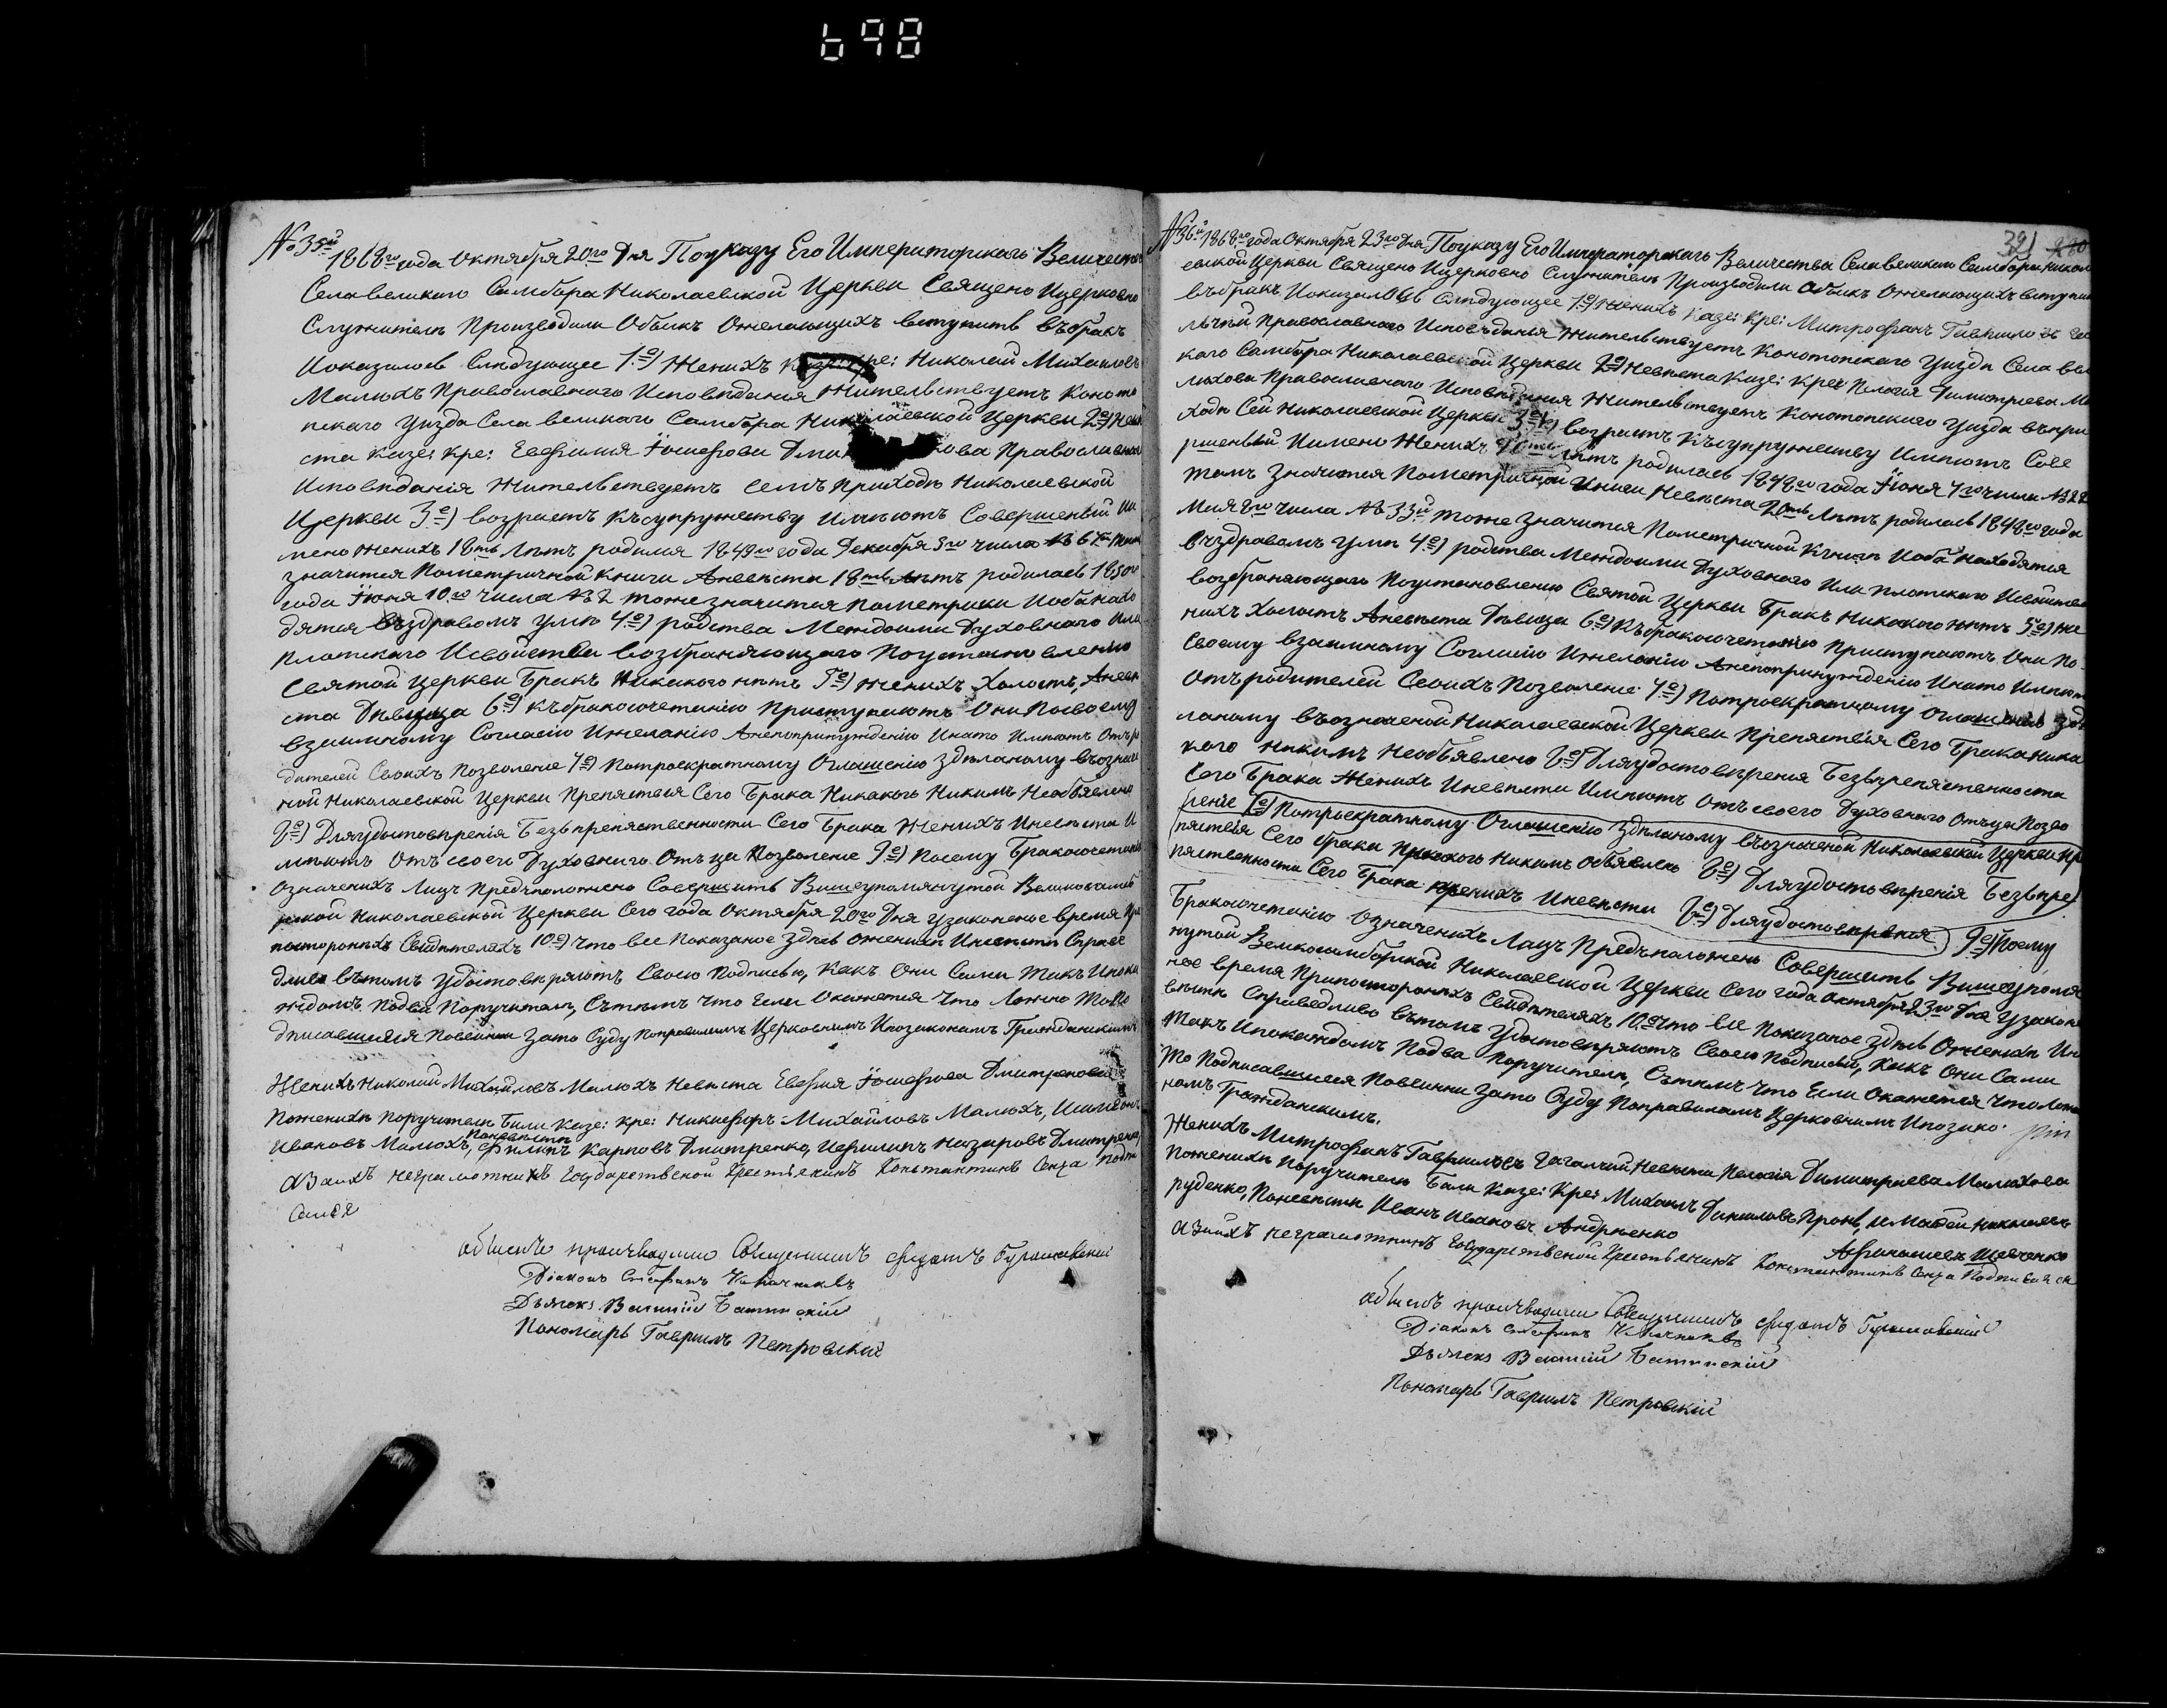 698
№35й 1868го года Октября 20го Дня Поуказу Его Императорскаго Величества
Села великаго Самбора Николаевской Церкви Священо Ицерковно
Служители Производили Обыск Ожелающихъ вступить въбракъ
Иоказалось Следующее 1е) Женихъ кре: Николай Михаиловъ
Малюхъ Православнаго Исповедания Жительствуетъ Коното
пскаго Уезда Села великаго Самбора Николаевской Церкви 2е) Неве
ста Казе: Кре: Евфимия Іосифова Православнаго
Исповеданія Жительствуетъ семъ приходе Николаевской
Церкви 3е) возрастъ Ксупружеству Имеютъ Совершеный Им
мено жених 18ть летъ родился 1849го года Декабря 3го числа
значится Пометричной Книги Аневеста 18ть летъ родилась 1850го
года Іюня 10го числа №2 тоже значится пометрики Иоба нахо
дятся въздравомъ уме 4е) родства Междоими Духовнаго Или
плотскаго Исвойства возбраняющаго Поустановлению
Святой Церкви Бракъ Никакого нетъ 5е) Женихъ Холостъ, Аневе
ста Девица 6е) Къбракосочетанію Приступаютъ Они Посвоему
взаимному Согласію Ижеланію Анепопринуждению Инато Имеютъ Отъро
дителей Своихъ Позволение 7е) Потроекратному Оглашению Зделаному въозначе
ной Николаевской Церкви Препятствия Сего Брака Никакого Никимъ Необъявлено
8е) Дляудостоверения Безъпрепяственности Сего Брака Женихъ Иневеста И
меютъ Отъ своего Духовнаго Отъца Позволение 9е) Посему Бракосочетание
Означенихъ Лицъ Предъположено Совершить Вишеупомянутой Великосамбо
рской Николаевской Церкви Сего года Октября 20го Дня узаконеное время При
посторонихъ Свидетеляхъ 10е) Что все Показаное Здесь Ожениха Иневести Справе
дливо въэтомъ удостоверяютъ Своею Подписью, какъ Они Сами такъ Ипока
ждомъ Подва Поручители, Сътемъ что Если Окажется что Ложно
дписавшиеся Повинни Зато Суду Поправиламъ Церковнимъ Ипозаконамъ Гражданскимъ
Женихъ Николай Михайловъ Малюхъ Невеста Евфимия Іосифова Дмитренкова
Пожених Поручители Били Казе: Кре: Никифоръ Михайловъ Малюхъ, Исимеонъ
Ивановъ Малюхъ, Поневести Филипъ Карповъ Дмитренко, Ифилипъ Назаровъ Дмитренко
Азаихъ неграмотнихъ Государственой Крестьянинъ Константинъ Сенча Подпи
сался
Обыскъ производили Священникъ
Діаконъ Стефанъ
Дьячекъ Василій
Пономарь Гавриилъ Петровскій
321
№36й 1868го года Октября 23го Дня Поуказу Его Императорскаго Величества Села великаго Самбора Никол
евской Церкви Священо Ицерковно Служители Производили Обыск Ожелающихъ вступить
въбракъ Иоказалось Следующее 1е) Женихъ Казе: Кре: Митрофанъ Гавриловъ
Православнаго Исповедания Жительствуетъ Конотопскаго Уезда Села вели
каго Самбора Николаевской Церкви 2е) Невеста Казе: Кре: Пелагия Димитриева Ма
люхова Православнаго Исповедания Жительствуетъ Конотопскаго Уезда въпри
ходе Сей Николаевской Церкви 3е) возрастъ Къ супружеству Имеютъ Сове
ршеный Имено Женихъ летъ родился 1848го года Іюня 4го числа №22
тамъ Значится Пометричной Книги Невеста 20ть Летъ родилась 1848го года
Мая 8го числа №33й тоже значится Пометричной Книги Иоба находятся
въздравомъ уме 4е) родства Междоими Духовнаго Или плотскаго Исвойства
возбраняющаго Поустановлению Святой Церкви Бракъ Никакого нетъ 5е) Же
нихъ Холостъ Аневеста Девица 6е) Къбракосочетанію Приступаютъ Они По-
Своему взаимному Согласию Ижеланію Анепопринуждению Инато Имеютъ
Отъродителей Своихъ Позволение 7е) Потроекратному Оглашению Зде
ланому въозначеной Николаевской Церкви Препяствия Сего Брака Ника
кого Никимъ Необъявлено 8е) Дляудостоверения Безъпрепяственности
Сего Брака Женихъ Иневести Имеютъ Отъ своего Духовнаго Отъца Позво
ление 7е) Потроекратному Оглашению Зделаному въозначеной Николаевской Церкви Пре
пяствия Сего брака Никакого Никимъ Объявлено 8е) Дляудостоверения Безъпре
пяственности Сего Брака Женихъ Иневести 8е) Дляудостоверения 9е) Посему
Бракосочетанію Означенихъ Лицъ Предъположено Совершить Вишеупомя
нутой Великосамборской Николаевской Церкви Сего года Октября 23го Дня узаконе
ное время Припосторонихъ Свидетеляхъ 10е) Что все Показаное здесь Ожениха Ине
вести Справедливо въэтомъ Удостоверяютъ Своею Подписью, Какъ Они Сами
такъ Ипокаждомъ Подва Поручители, Сътемъ что Если Окажется Что Ложно
То Подписавшиеся Повинни Зато Суду Поправиламъ Церковнимъ Ипозако
номъ Гражданскимъ.
Женихъ Митрофанъ Гавриловъ Невеста Пелагия Димитриева Малюхова
Пожених Поручители Били Казе: Кре: Михаилъ Даниловъ Пронь, Иматвей Николаевъ
руденко, Поневести Иванъ Ивановъ Андриенко
Афанасиевъ Шевченко
Азаихъ неграмотнихъ Государственой Крестьянинъ Константинъ Сенча Подписался
Обыскъ производили Священникъ
Діаконъ Стефанъ
Дьячекъ Василій
Пономарь Гавриилъ Петровскій